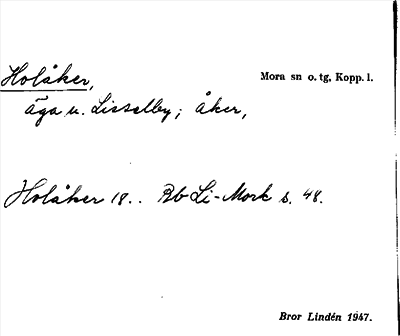 Holåker,
Mora sn o. tg, Kopp. l.
äga u. Lisselby; åker,
Holåker 18.. Rb Li-Mork s. 48.
Bror Lindén 1947.